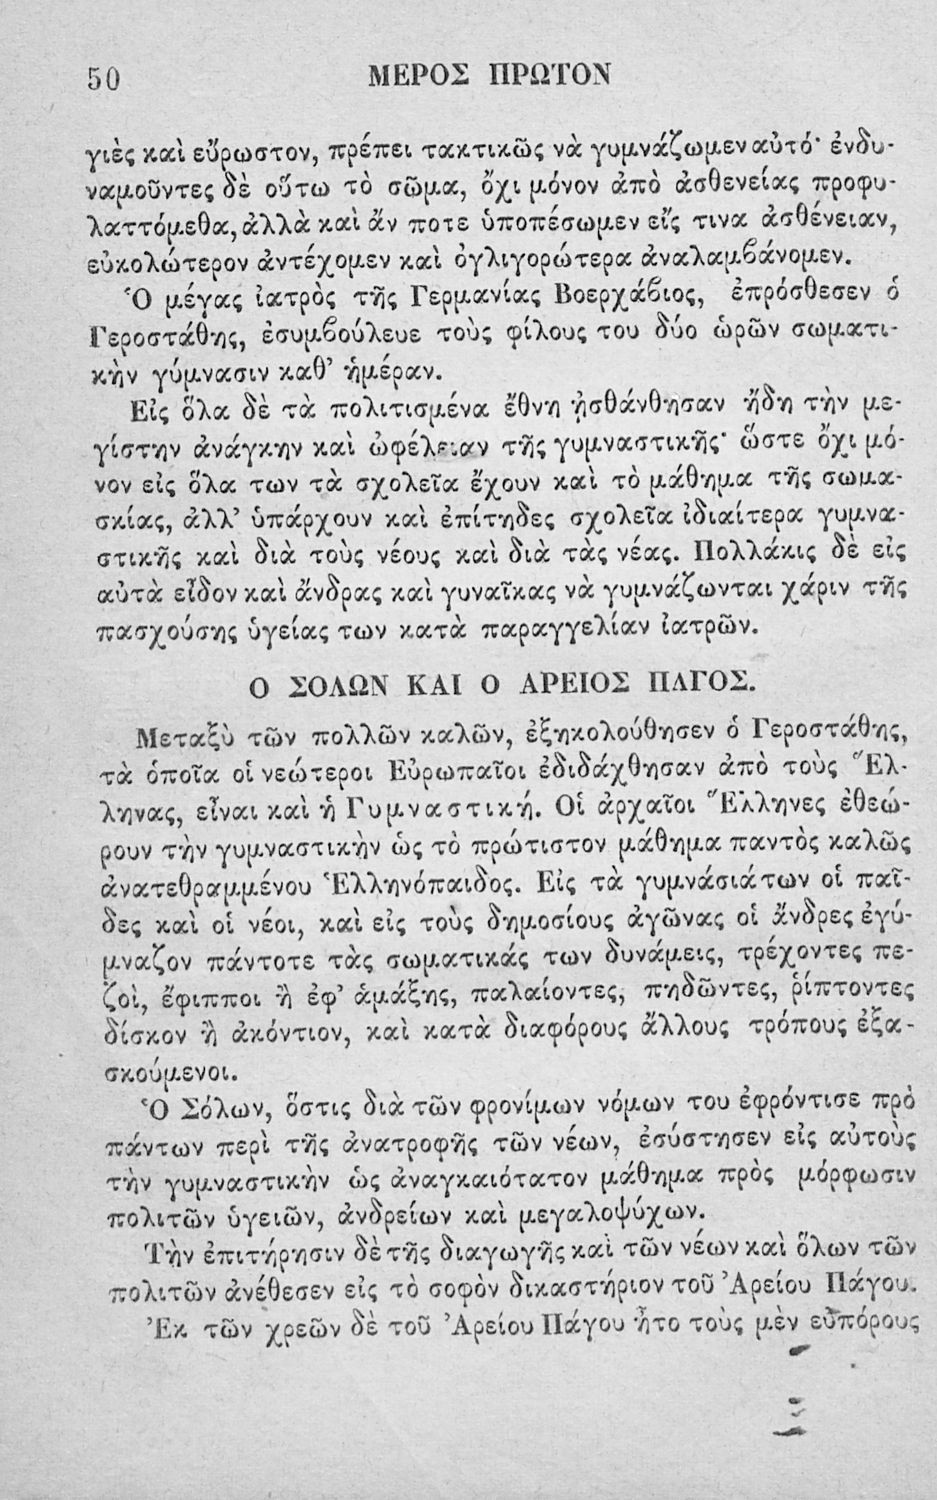 50 ΜΕΡΟΣ ΠΡΩΤΟΝ
γιὲς καὶ εὔρωστον, πρέπει τακτικῶς νὰ γυμνάζωμεν αὐτό· ἐνδυ-
ναμοῦντες δὲ οὕτω τὸ σῶμα, ὄχι μόνον ἀπὸ ἀσθενείας προφυ-
λαττόμεθα, ἀλλὰ καὶ ἄν ποτε ὑποπέσωμεν εἴς τινα ἀσθένειαν,
εὐκολώτερον ἀντέχομεν καὶ ὀγλιγορώτερα ἀναλαμβάνομεν.
Ὁ μέγας ἰατρὸς τῆς Γερμανίας Βοερχάβιος, ἐπρόσθεσεν ὁ
Γεροστάθης, ἐσυμβούλευε τοὺς φίλους του δύο ὡρῶν σωματι-
κὴν γύμνασιν καθ' ἡμέραν.
Εἰς ὅλα δὲ τὰ πολιτισμένα ἔθνη ᾐσθάνθησαν ἤδη τὴν με-
γίστην ἀνάγκην καὶ ὠφέλειαν τῆς γυμναστικῆς· ὥστε ὄχι μό-
νον εἰς ὅλα των τὰ σχολεῖα ἔχουν καὶ τὸ μάθημα τῆς σωμα-
σκίας, ἀλλ' ὑπάρχουν καὶ ἐπίτηδες σχολεῖα ἰδιαίτερα γυμνα-
στικῆς καὶ διὰ τοὺς νέους καὶ διὰ τὰς νέας. Πολλάκις δὲ εἰς
αὐτὰ εἶδον καὶ ἄνδρας καὶ γυναῖκας νὰ γυμνάζωνται χάριν τῆς
πασχούσης ὑγείας των κατὰ παραγγελίαν ἰατρῶν.
Ο ΣΟΛΩΝ ΚΑΙ Ο ΑΡΕΙΟΣ ΠΑΓΟΣ.
Μεταξὺ τῶν πολλῶν καλῶν, ἐξηκολούθησεν ὁ Γεροστάθης,
τὰ ὁποῖα οἱ νεώτεροι Εὐρωπαῖοι ἐδιδάχθησαν ἀπὸ τοὺς Ἕλ-
ληνας, εἶναι καὶ ἡ Γυμναστική. Οἱ ἀρχαῖοι Ἕλληνες ἐθεώ-
ρουν τὴν γυμναστικὴν ὡς τὸ πρώτιστον μάθημα παντὸς καλῶς
ἀνατεθραμμένου Ἑλληνόπαιδος. Εἰς τὰ γυμνάσιά των οἱ παῖ-
δες καὶ οἱ νέοι, καὶ εἰς τοὺς δημοσίους ἀγῶνας οἱ ἄνδρες ἐγύ-
μναζον πάντοτε τὰς σωματικάς των δυνάμεις, τρέχοντες πε-
ζοὶ, ἔφιπποι ἢ ἐφ' ἁμάξης, παλαίοντες, πηδῶντες, ῥίπτοντες
δίσκον ἢ ἀκόντιον, καὶ κατὰ διαφόρους ἄλλους τρόπους ἐξα-
σκούμενοι.
Ὁ Σόλων, ὅστις διὰ τῶν φρονίμων νόμων του ἐφρόντισε πρὸ
πάντων περὶ τῆς ἀνατροφῆς τῶν νέων, ἐσύστησεν εἰς αὐτοὺς
τὴν γυμναστικὴν ὡς ἀναγκαιότατον μάθημα πρὸς μόρφωσιν
πολιτῶν ὑγειῶν, ἀνδρείων καὶ μεγαλοψύχων.
Τὴν ἐπιτήρησιν δὲ τῆς διαγωγῆς καὶ τῶν νέων καὶ ὅλων τῶν
πολιτῶν ἀνέθεσεν εἰς τὸ σοφὸν δικαστήριον τοῦ Ἀρείου Πάγου.
Ἐκ τῶν χρεῶν δὲ τοῦ Ἀρείου Πάγου ἦτο τοὺς μὲν εὐπόρους